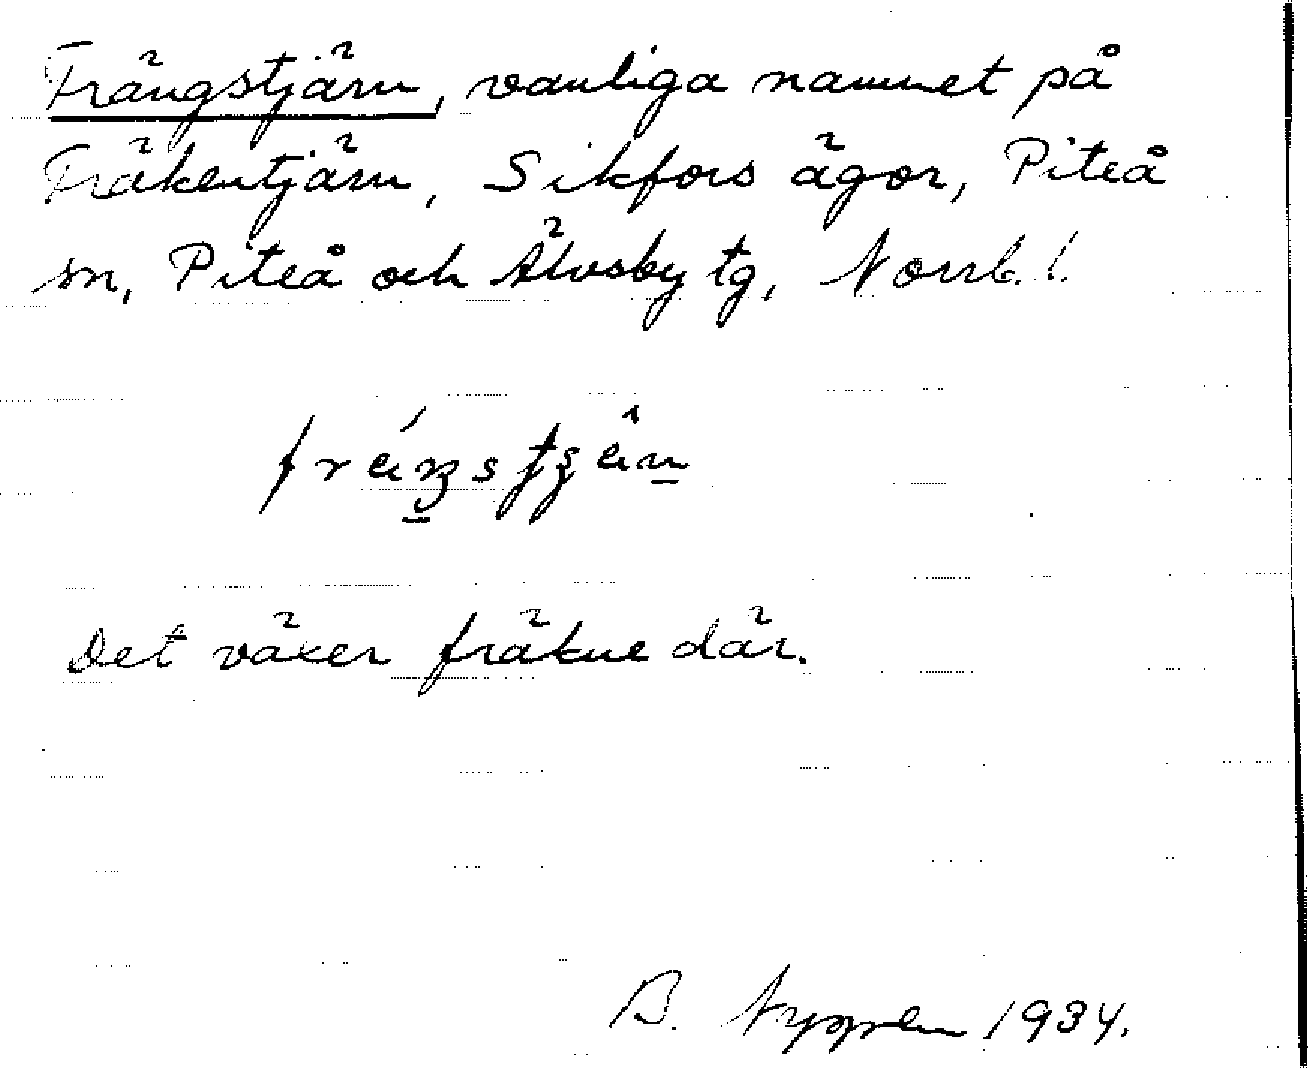 Frängstjärn, vanliga namnet på
Fräkentjärn, Sikfors ägor, Piteå
sn, Piteå och Älvsby tg, Norrb. l.
Det växer fräkne där.
B. 1934.